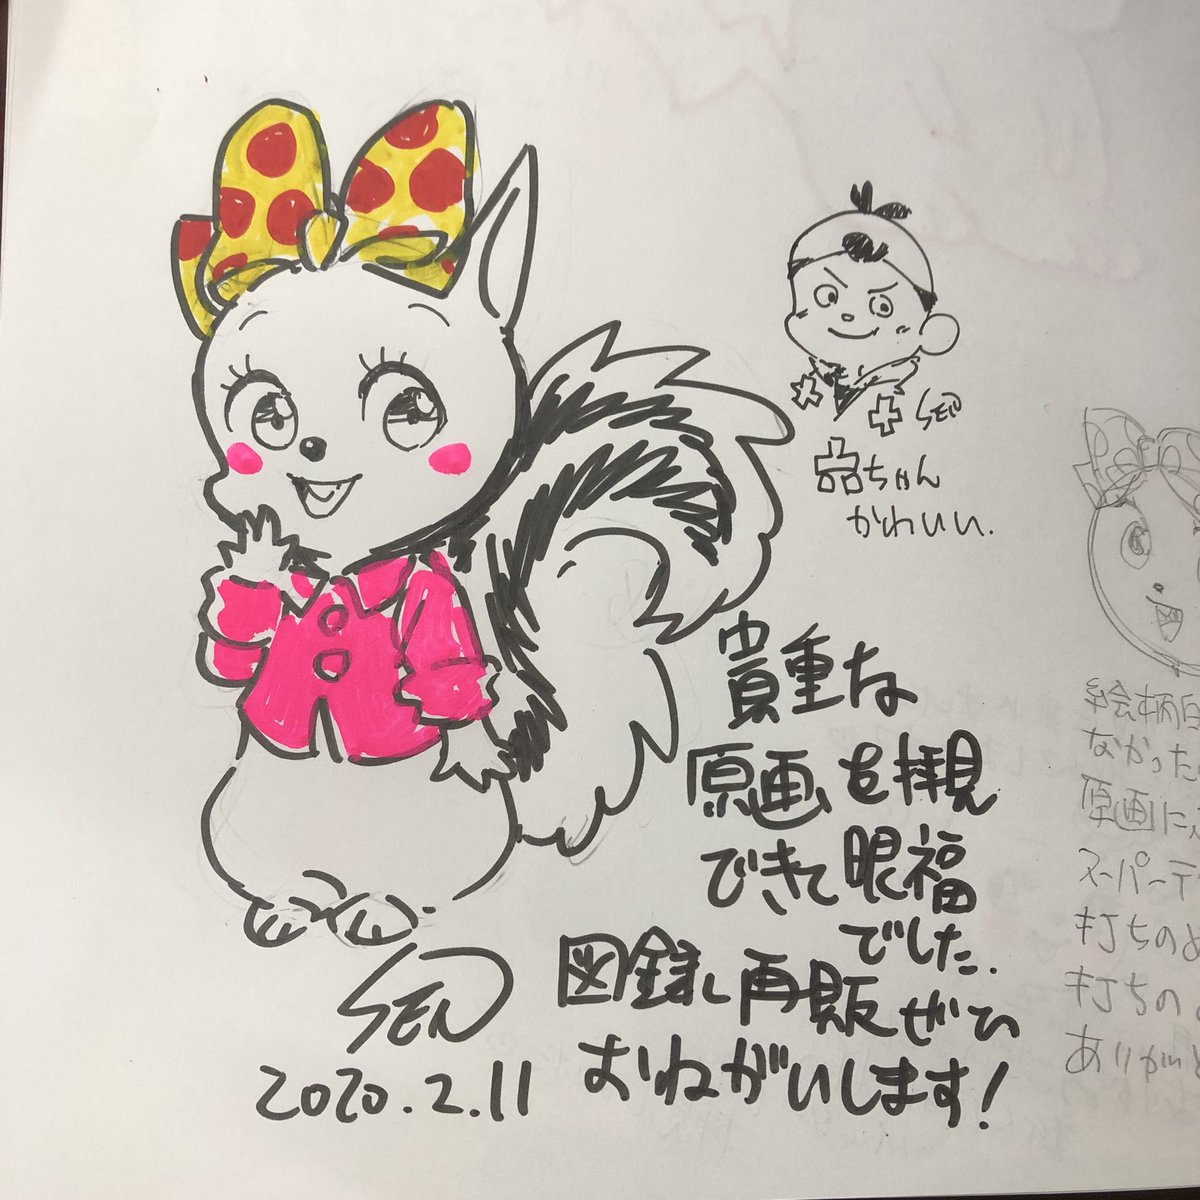 SEN
品ちゃん
かわいい.
貴重な
原画を拝見
できて眼福
でした.
図録し再販ぜひ
おねがいします!
SEN
2020.2.11
絵柄
なかった
原画に
スーパーテ
打ちの
打ちの
ありがと